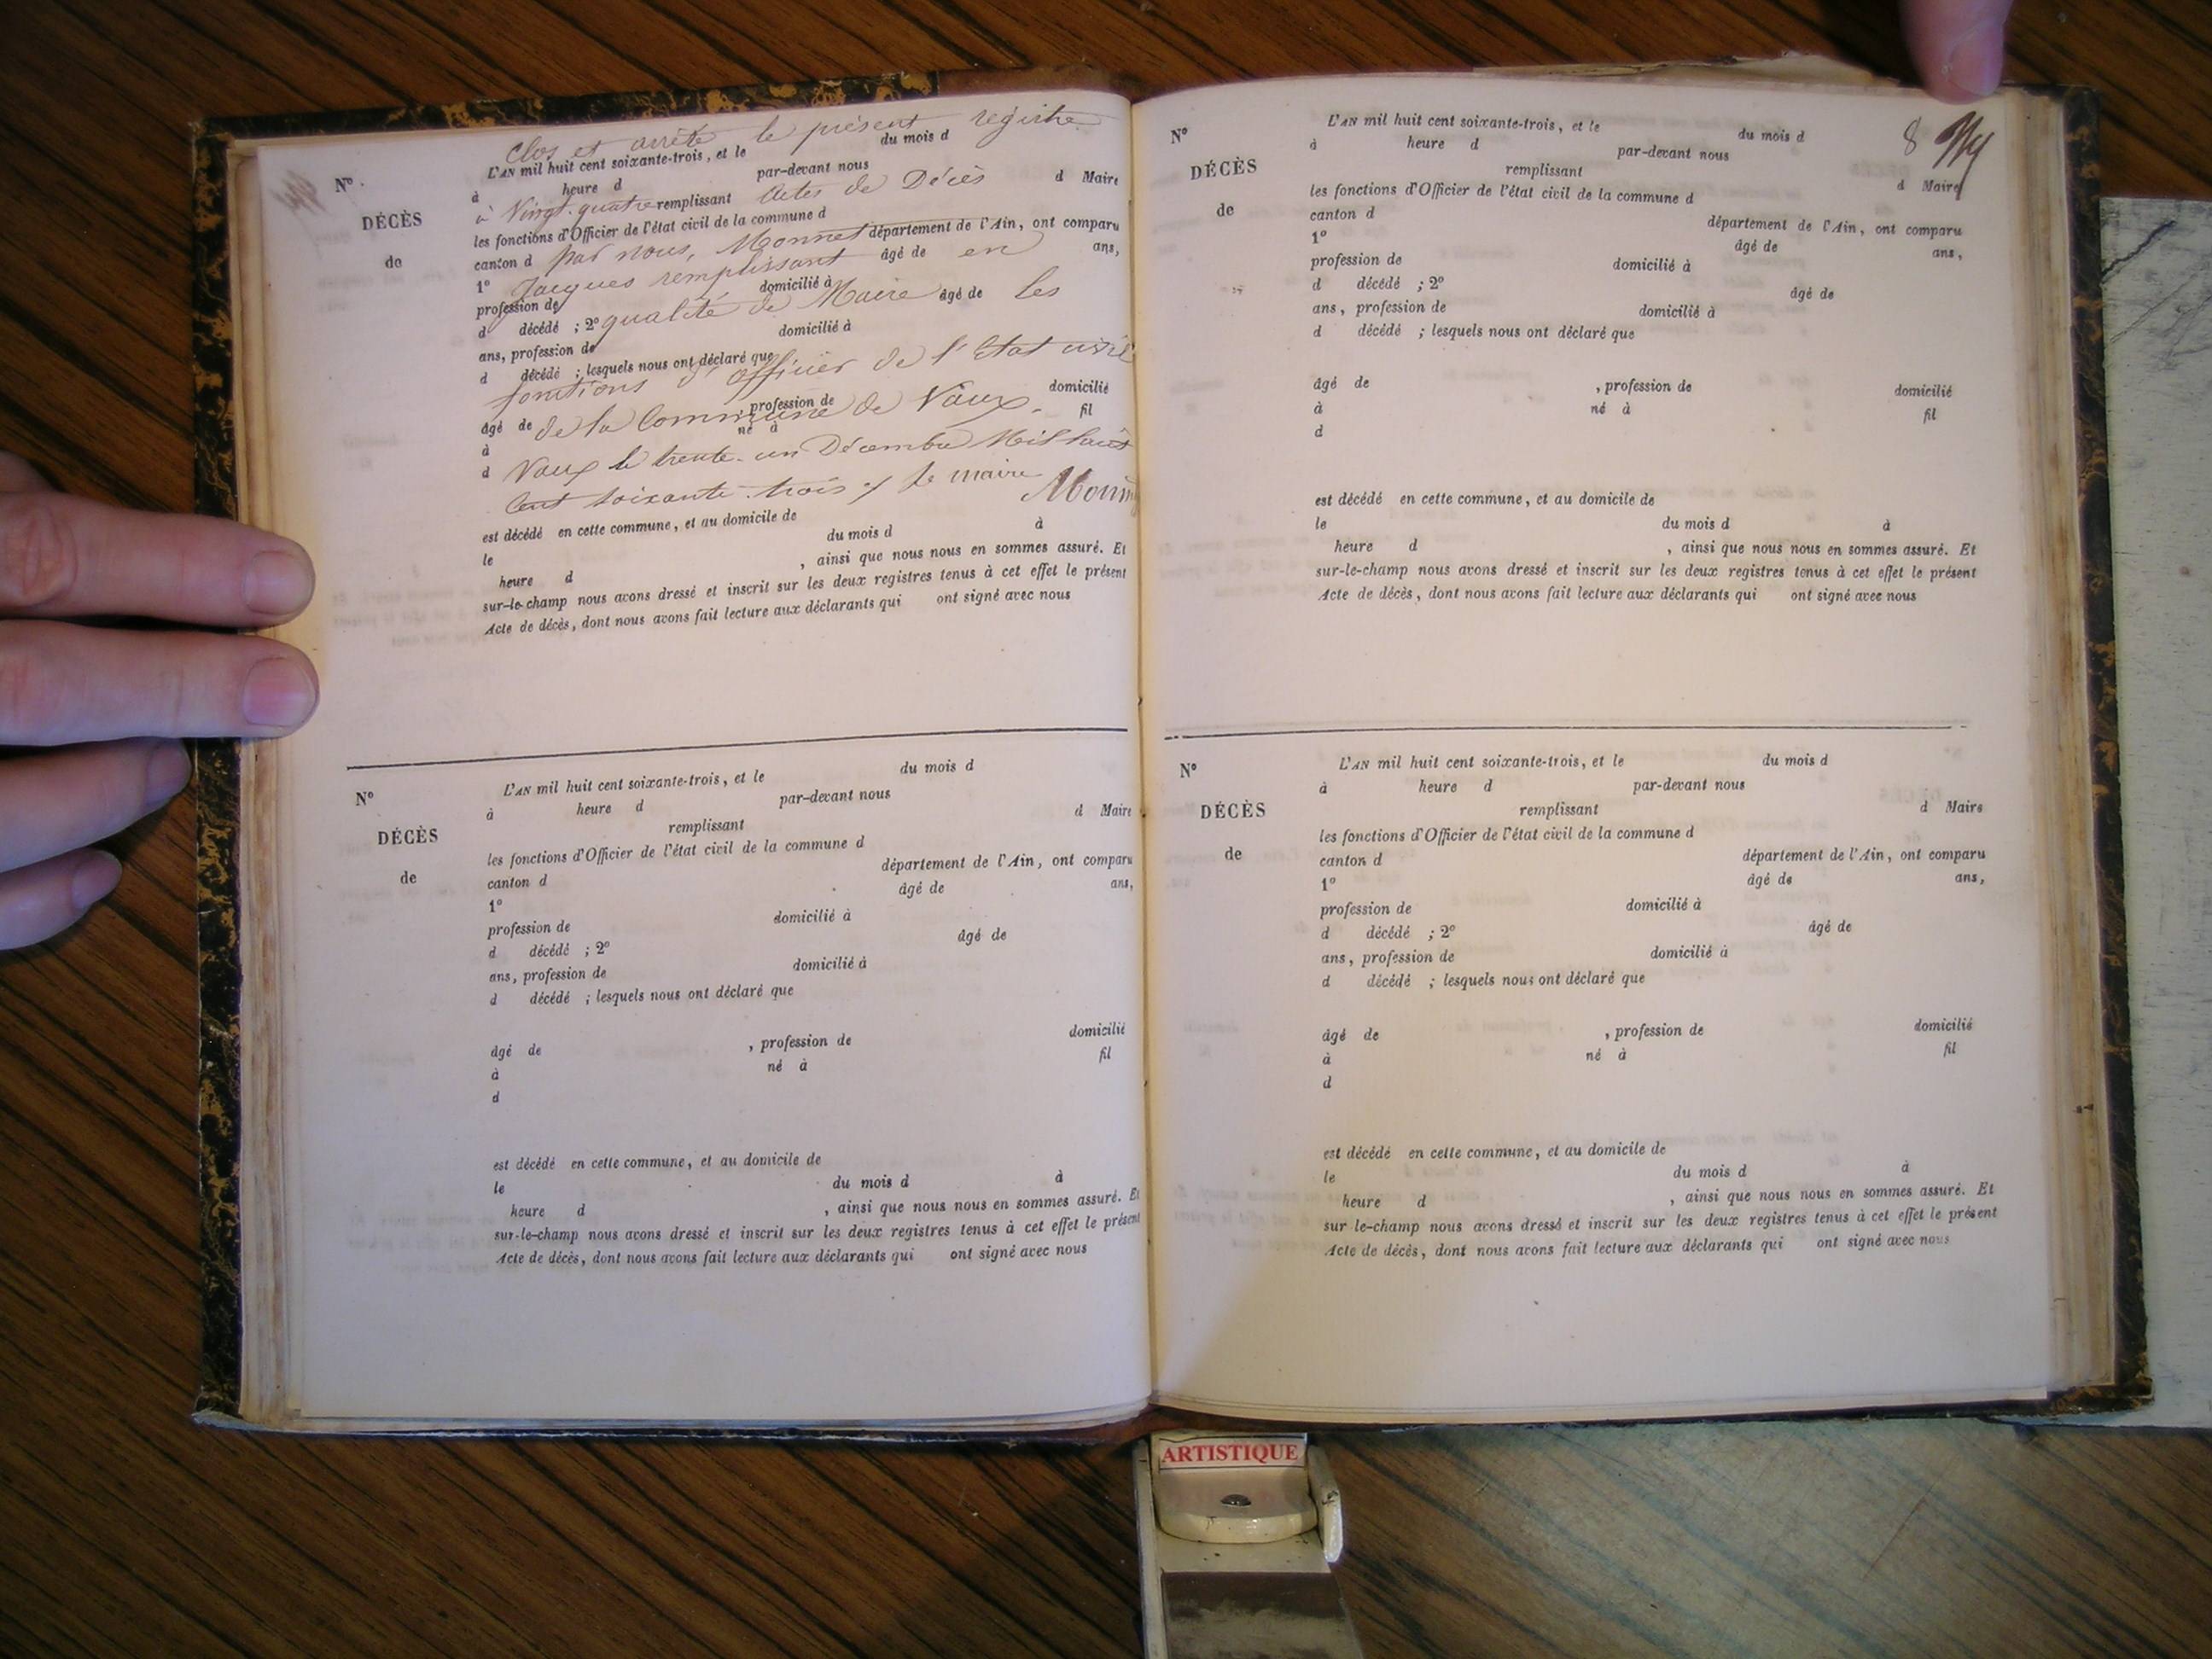 Clos et arrêté le présent régistre
L'AN mil huit cent soixante-trois, et le du mois d
N° à heure d par-devant nous
à Vingt-quatre remplissant Actes de Décès d Maire
DÉCÈS les fonctions d'Officier de l'état civil de la commune d
de canton d par nous, Monnet département de l'Ain, ont comparu
1° Jacques remplissant âgé de en ans,
profession de domicilié à
d décédé ; 2° qualité de Maire âgé de les
ans, profession de domicilié à
d décédé ; lesquels nous ont déclaré que
fonctions d'officier de l'Etat civil
âgé de , profession de domicilié
de la Commune de Vaux.
à né à fil
d Vaux le trente-un Décembre Mil huit
Cent soixante-trois le maire Monnet
est décédé en cette commune, et au domicile de
le du mois d à
heure d , ainsi que nous nous en sommes assuré. Et
sur-le-champ nous avons dressé et inscrit sur les deux registres tenus à cet effet le présent
Acte de décès, dont nous avons fait lecture aux déclarants qui ont signé avec nous
L'AN mil huit cent soixante-trois, et le du mois d
N° à heure d par-devant nous
remplissant d Maire
DÉCÈS les fonctions d'Officier de l'état civil de la commune d
de canton d département de l'Ain, ont comparu
1° âgé de ans,
profession de domicilié à
d décédé ; 2° âgé de
ans, profession de domicilié à
d décédé ; lesquels nous ont déclaré que
âgé de , profession de domicilié
à né à fil
d
est décédé en cette commune, et au domicile de
le du mois d à
heure d , ainsi que nous nous en sommes assuré. Et
sur-le-champ nous avons dressé et inscrit sur les deux registres tenus à cet effet le présent
Acte de décès, dont nous avons fait lecture aux déclarants qui ont signé avec nous
8
N° L'AN mil huit cent soixante-trois, et le du mois d
à heure d par-devant nous
DÉCÈS remplissant d Maire
les fonctions d'Officier de l'état civil de la commune d
de canton d département de l'Ain, ont comparu
1° âgé de ans,
profession de domicilié à
d décédé ; 2° âgé de
ans, profession de domicilié à
d décédé ; lesquels nous ont déclaré que
âgé de , profession de domicilié
à né à fil
d
est décédé en cette commune, et au domicile de
le du mois d à
heure d , ainsi que nous nous en sommes assuré. Et
sur-le-champ nous avons dressé et inscrit sur les deux registres tenus à cet effet le présent
Acte de décès, dont nous avons fait lecture aux déclarants qui ont signé avec nous
N° L'AN mil huit cent soixante-trois, et le du mois d
à heure d par-devant nous
DÉCÈS remplissant d Maire
les fonctions d'Officier de l'état civil de la commune d
de canton d département de l'Ain, ont comparu
1° âgé de ans,
profession de domicilié à
d décédé ; 2° âgé de
ans, profession de domicilié à
d décédé ; lesquels nous ont déclaré que
âgé de , profession de domicilié
à né à fil
d
est décédé en cette commune, et au domicile de
le du mois d à
heure d , ainsi que nous nous en sommes assuré. Et
sur le-champ nous avons dressé et inscrit sur les deux registres tenus à cet effet le présent
Acte de décès, dont nous avons fait lecture aux déclarants qui ont signé avec nous
ARTISTIQUE